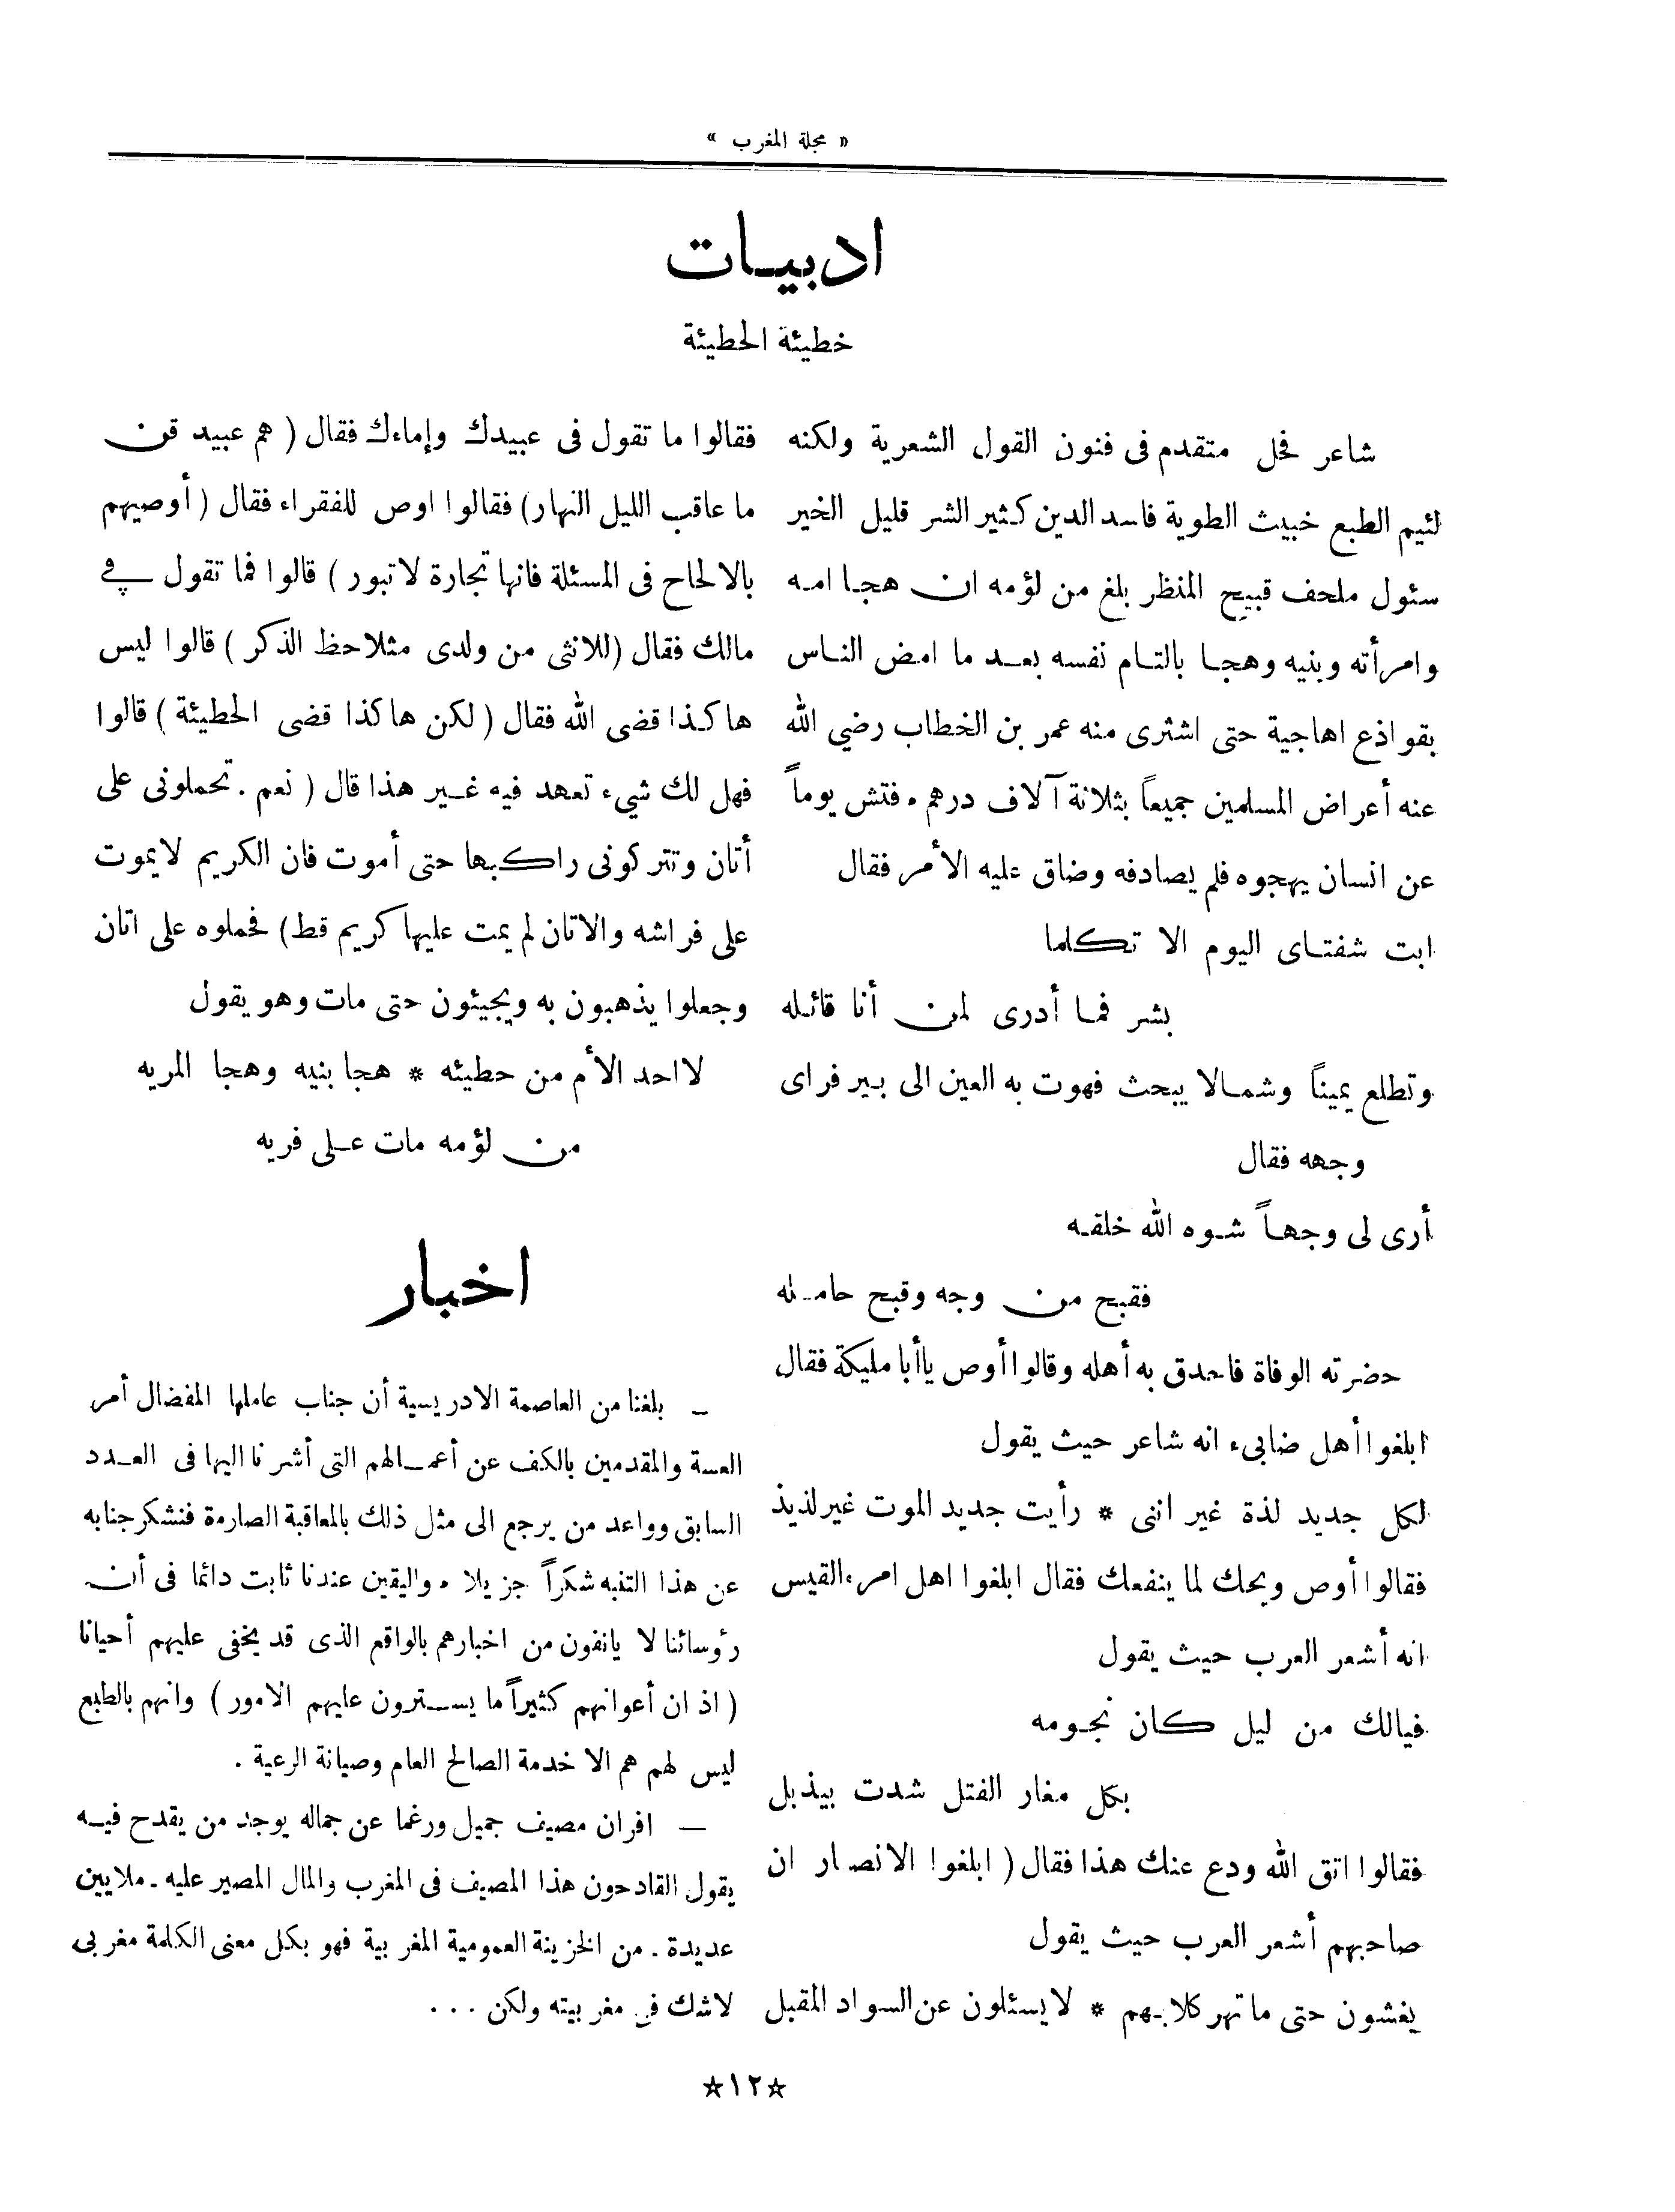 « مجلة المغرب »
ادبيات
خطيئة الحطيئة
شاعر فحل متقدم فى فنون القول الشعرية ولكنه
لئيم الطبع خبيث الطوية فاسد الدين كثير الشر قليل الخير
سئول ملحف قبيح المنظر بلغ من لؤمه ان هجا امه
وامرأته وبنيه وهجا بالتام نفسه بعد ما امض الناس
بقواذع اهاجية حتى اشثرى منه عمر بن الخطاب رضي الله
عنه أعراض المسلمين جميعاً بثلاثة آلاف درهم . فتش يوماً
عن انسان يهجوه فلم يصادفه وضاق عليه الأمر فقال
ابت شفتاى اليوم الا تكلما
بشر فما أدرى لمن أنا قائله
وتطلع يميناً وشمالا يبحث فهوت به العين الى بير فراى
وجهه فقال
أرى لى وجهاً شوه الله خلقه
فقبح من وجه وقبح حامله
حضرته الوفاة فاحدق به أهله وقالوا أوص ياأبا مليكة فقال
ابلغوا أهل ضابىء انه شاعر حيث يقول
لكل جديد لذة غير اننى * رأيت جديد الموت غير لذيذ
فقالوا أوص ويحك لما ينفعك فقال ابلغوا اهل امرء القيس
انه أشعر العرب حيث يقول
فيالك من ليل كان نجومه
بكل مغار الفتل شدت بيذبل
فقالوا اتق الله ودع عنك هذا فقال ( ابلغوا الانصار ان
صاحبهم أشعر العرب حيث يقول
يغشون حتى ما تهر كلابهم * لا يسئلون عن السواد المقبل
فقالوا ما تقول فى عبيدك وإماءك فقال ( هم عبيد قن
ما عاقب الليل النهار) فقالوا اوص للفقراء فقال ( أوصيهم
بالالحاح فى المسئلة فانها تجارة لا تبور ) قالوا فما تقول في
مالك فقال (للانثى من ولدى مثلاحظ الذكر ) قالوا ليس
هاكذا قضى الله فقال ( لكن هاكذا قضى الحطيئة ) قالوا
فهل لك شيء تعهد فيه غير هذا قال ( نعم . تحملونى على
أتان وتتركونى راكبها حتى أموت فان الكريم لا يموت
على فراشه والاتان لم يمت عليها كريم قط) فحملوه على اتان
وجعلوا يذهبون به ويجيئون حتى مات وهو يقول
لا احد الأم من حطيئه * هجا بنيه وهجا المريه
من لؤمه مات على فريه
اخبار
— بلغنا من العاصمة الادريسية أن جناب عاملها المفضال أمر
العسة والمقدمين بالكف عن أعمالهم التى أشرنا اليها فى العدد
السابق وواعد من يرجع الى مثل ذلك بالمعاقبة الصارمة فنشكر جنابه
عن هذا التنبه شكراً جزيلا . واليقين عندنا ثابت دائما فى أن
رؤسائنا لا يانفون من اخبارهم بالواقع الذى قد يخفى عليهم أحيانا
( اذ ان أعوانهم كثيراً ما يسترون عليهم الامور ) وانهم بالطبع
ليس لهم هم الا خدمة الصالح العام وصيانة الرعية .
— افران مصيف جميل ورغما عن جماله يوجد من يقدح فيه
يقول القادحون هذا المصيف فى المغرب والمال المصير عليه . ملايين
عديدة . من الخزينة العمومية المغربية فهو بكل معنى الكلمة مغربى
لاشك فى مغربيته ولكن ...
☆١٢☆